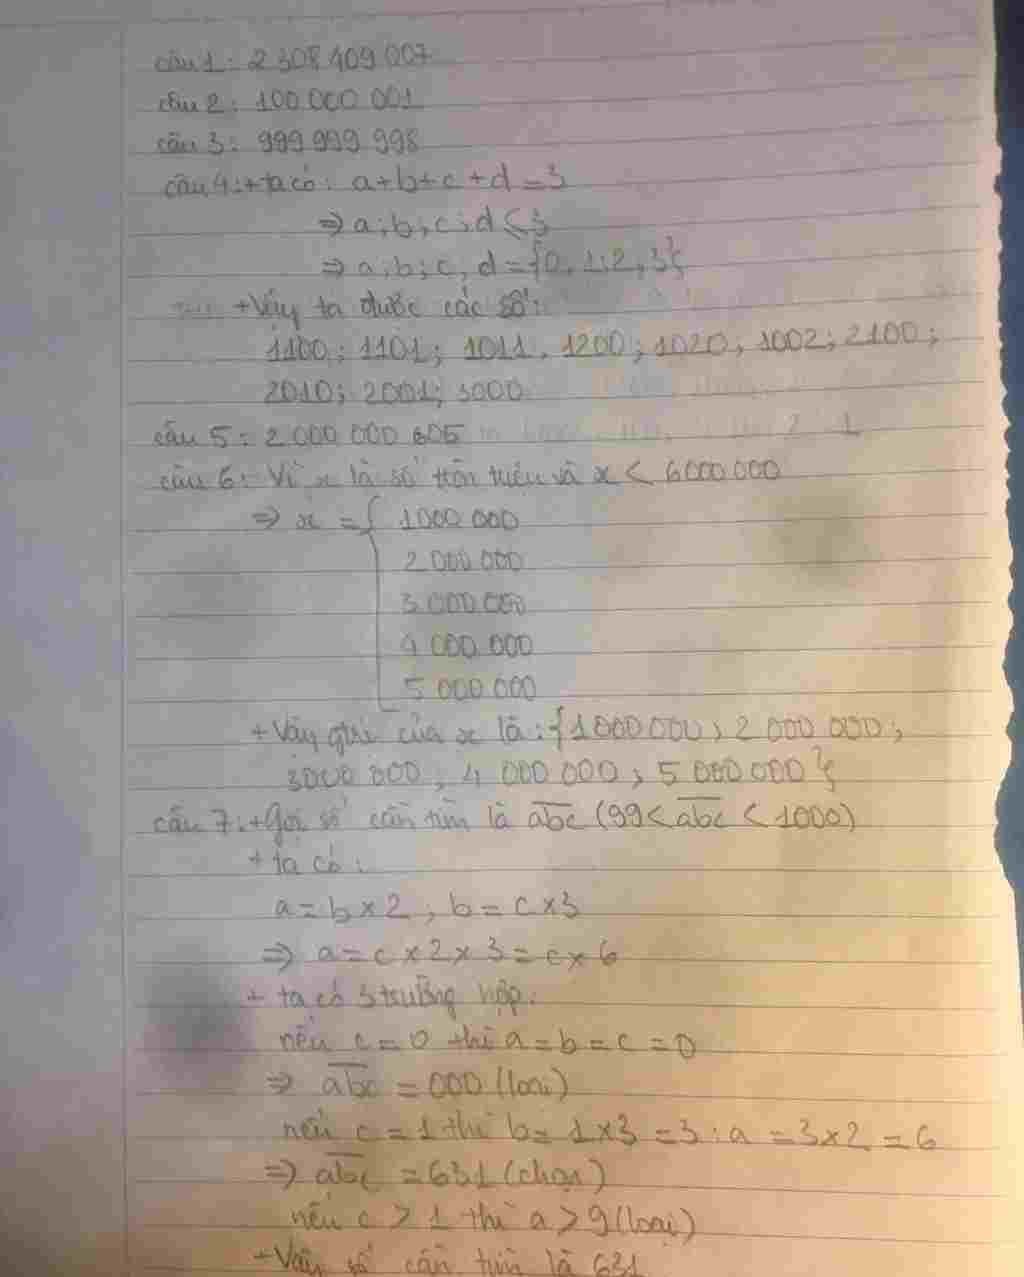 câu 1: 2 308 409 007
câu 2: 100 000 001
câu 3: 999 999 998
câu 4: + ta có: a+b+c+d=3
=> a;b;c;d ≤ 3
=> a;b;c,d={0,1;2,3}
+Vậy ta được các số:
1100; 1101; 1011, 1200; 1020; 1002; 2100;
2010; 2001; 3000
câu 5: 2 000 000 605
câu 6: Vì x là số tròn triệu và x < 6000 000
=> x = { 1000 000
2 000 000
3 000 000
4 000 000
5 000 000
+ Vậy gtrị của x là: {1000 000; 2 000 000;
3000 000; 4 000 000; 5 000 000}
câu 7: +Gọi số cần tìm là abc (99< abc < 1000)
+ ta có:
a = b × 2, b = c × 3
=> a = c × 2 × 3 = c × 6
+ ta có 3 trường hợp:
nếu c = 0 thì a = b = c = 0
=> abc = 000 (loại)
nếu c = 1 thì b = 1×3 = 3; a = 3×2 = 6
=> abc = 631 (chọn)
nếu c > 1 thì a > 9 (loại)
+ Vậy số cần tìm là 631